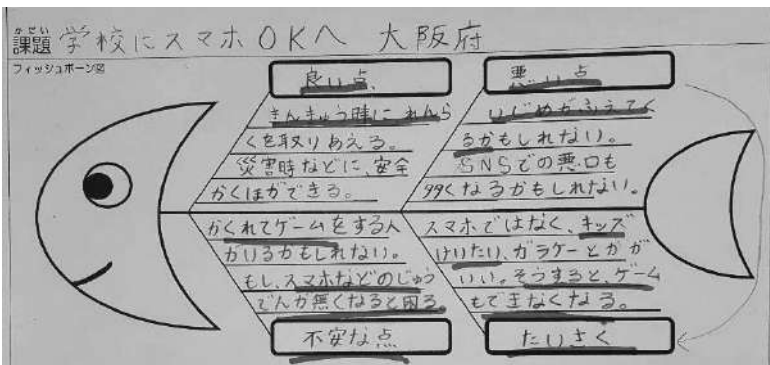 かだい
課題 学校にスマホOKへ 大阪府
フィッシュボーン図
良い点、
きんきゅう時に れんら
くを取りあえる。
災害時などに、安全
かくほができる。
悪い点
いじめがふえてく
るかもしれない。
SNSでの悪口も
多くなるかもしれない。
かくれてゲームをする人
がいるかもしれない。
もし、スマホなどのじゅう
でんが無くなると困る。
不安な点
スマホではなく、キッズ
けいたい、ガラケーとかが
いい。そうすると、ゲーム
もできなくなる。
たいさく